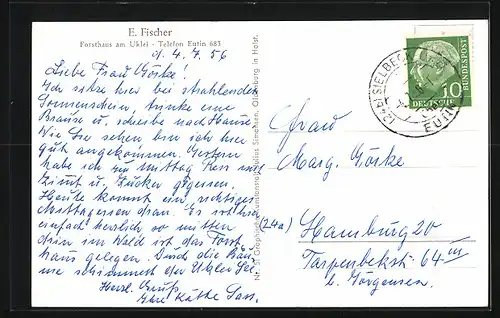 E. Fischer
Forsthaus am Uklei - Telefon Eutin 683
d. 4. 7. 56
Liebe Frau Yörke!
Ich sitze hier bei strahlendem
Sonnenschein, trinke eine
Brause u. schreibe nach Hause.
Wie Sie sehen bin ich hier
gut angekommen. Gestern
habe ich zu Mittag Reis mit
Zimt u. Zucker gegessen.
Heute kommt ein richtiges
Mittagessen dran. Es ist hier
einfach herrlich so mitten
drin im Wald ist das Forst
haus gelegen. Durch die Bäu-
me schimmert der Uklei See.
Herzl. Gruß
Ihre Käthe Sass.
Julius Simonsen, Oldenburg in Holst.
DEUTSCHE BUNDESPOST
10
SIELBECK
EUTIN
Frau
Marg. Yörke
(24a) Hamburg 20
Tarpenbekstr. 64 III
b. Jörgensen